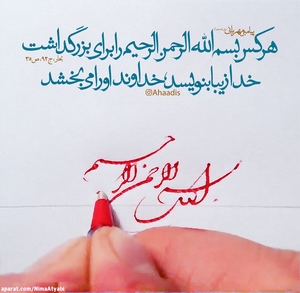 پیامبر مهربان
هرکس بسم الله الرحمن الرحیم را برای بزرگداشت
بحار، ج ۹۲، ص ۳۵
خدا زیبا بنویسد، خداوند او را می بخشد
@Ahaadis
بسم الله الرحمن الرحیم
aparat.com/NimaAtyabi